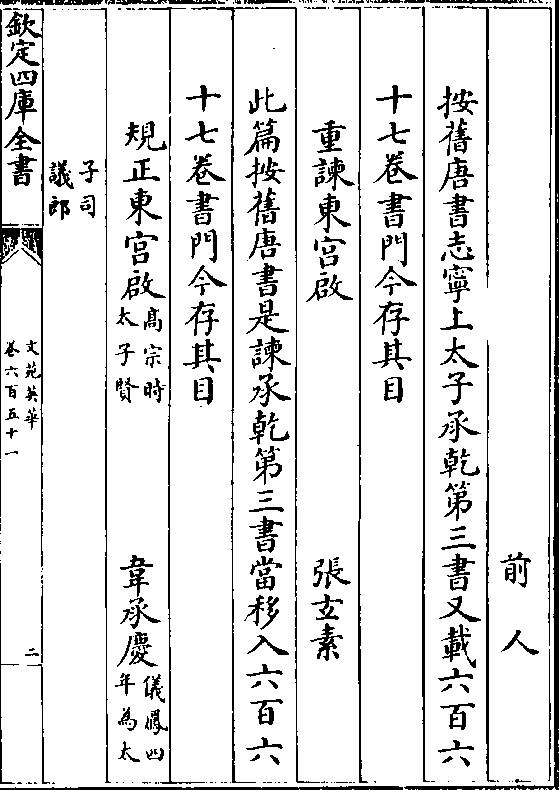 前人
按舊唐書志寧上太子承乾第三書又載六百六
十七卷書門今存其目
重諫東宫啟 張玄素
此篇按舊唐書是諫承乾第三書當移入六百六
十七卷書門今存其目
規正東宫啟 髙宗時太子賢 韋承慶 儀鳳四年為太
子司議郎
欽定四庫全書 文苑英華卷六百五十一 二